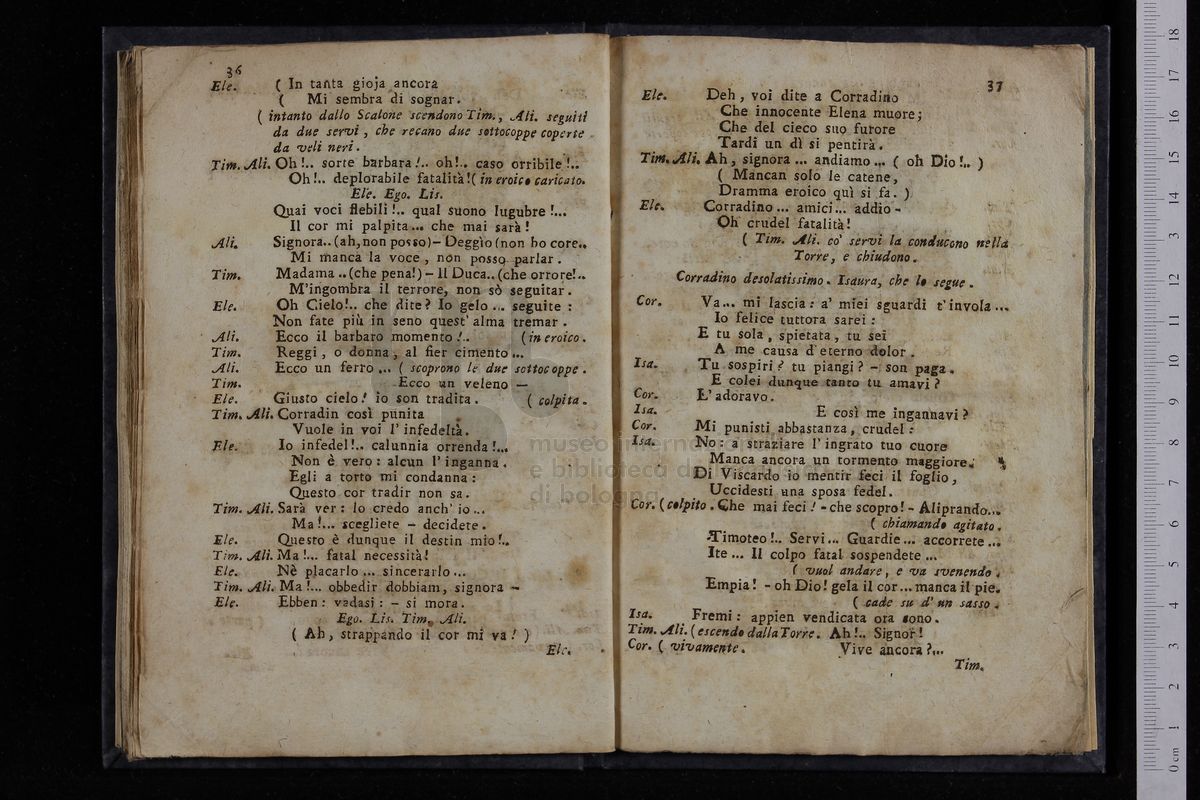 36
Ele. ( In tanta gioja ancora
( Mi sembra di sognar.
( intanto dallo Scalone scendono Tim., Ali. seguiti
da due servi, che recano due sottocoppe coperte
da veli neri.
Tim. Ali. Oh!.. sorte barbara!.. oh!.. caso orribile!..
Oh!.. deplorabile fatalità!( in eroico caricato.
Ele. Ego. Lis.
Quai voci flebili!.. qual suono lugubre!...
Il cor mi palpita... che mai sarà!
Ali. Signora..(ah,non posso)– Deggìo(non ho core..
Mi manca la voce, non posso parlar.
Tim. Madama..(che pena!) – Il Duca..(che orrore!..
M'ingombra il terrore, non sò seguitar.
Ele. Oh Cielo!.. che dite? Io gelo... seguite:
Non fate più in seno quest' alma tremar.
Ali. Ecco il barbaro momento!.. (in eroico.
Tim. Reggi, o donna, al fier cimento...
Ali. Ecco un ferro... ( scoprono le due sottocoppe.
Tim. Ecco un veleno —
Ele. Giusto cielo! io son tradita. ( colpita.
Tim. Ali. Corradin così punita
Vuole in voi l'infedeltà.
Ele. Io infedel!.. calunnia orrenda!...
Non è vero: alcun l'inganna.
Egli a torto mi condanna:
Questo cor tradir non sa.
Tim. Ali. Sarà ver: lo credo anch'io...
Ma!... scegliete – decidete.
Ele. Questo è dunque il destin mio!..
Tim. Ali. Ma!... fatal necessità!
Ele. Nè placarlo... sincerarlo...
Tim. Ali. Ma!... obbedir dobbiam, signora –
Ele. Ebben: vadasi: – si mora.
Ego. Lis. Tim. Ali.
( Ah, strappando il cor mi va! )
Ele.
37
Ele. Deh, voi dite a Corradino
Che innocente Elena muore;
Che del cieco suo furore
Tardi un dì si pentirà.
Tim. Ali. Ah, signora... andiamo... ( oh Dio!.. )
( Mancan solo le catene,
Dramma eroico quì si fa. )
Ele. Corradino... amici... addio –
Oh crudel fatalità!
( Tim. Ali. co' servi la conducono nella
Torre, e chiudono.
Corradino desolatissimo. Isaura, che lo segue.
Cor. Va... mi lascia: a' miei sguardi t'invola...
Io felice tuttora sarei:
E tu sola, spietata, tu sei
A me causa d'eterno dolor.
Isa. Tu sospiri? tu piangi? – son paga.
E colei dunque tanto tu amavi?
Cor. L'adoravo.
Isa. E così me ingannavi?
Cor. Mi punisti abbastanza, crudel:
Isa. No: a straziare l'ingrato tuo cuore
Manca ancora un tormento maggiore:
Di Viscardo io mentir feci il foglio,
Uccidesti una sposa fedel.
Cor. (colpito. Che mai feci! - che scopro! - Aliprando...
( chiamando agitato.
Timoteo!.. Servi... Guardie... accorrete...
Ite... Il colpo fatal sospendete...
( vuol andare, e va svenendo.
Empia! - oh Dio! gela il cor... manca il pie.
( cade su d'un sasso.
Isa. Fremi: appien vendicata ora sono.
Tim. Ali. (escendo dalla Torre. Ah!.. Signor!
Cor. ( vivamente. Vive ancora?...
Tim.
museo internazionale
e biblioteca della musica
di bologna
0 cm 1 2 3 4 5 6 7 8 9 10 11 12 13 14 15 16 17 18